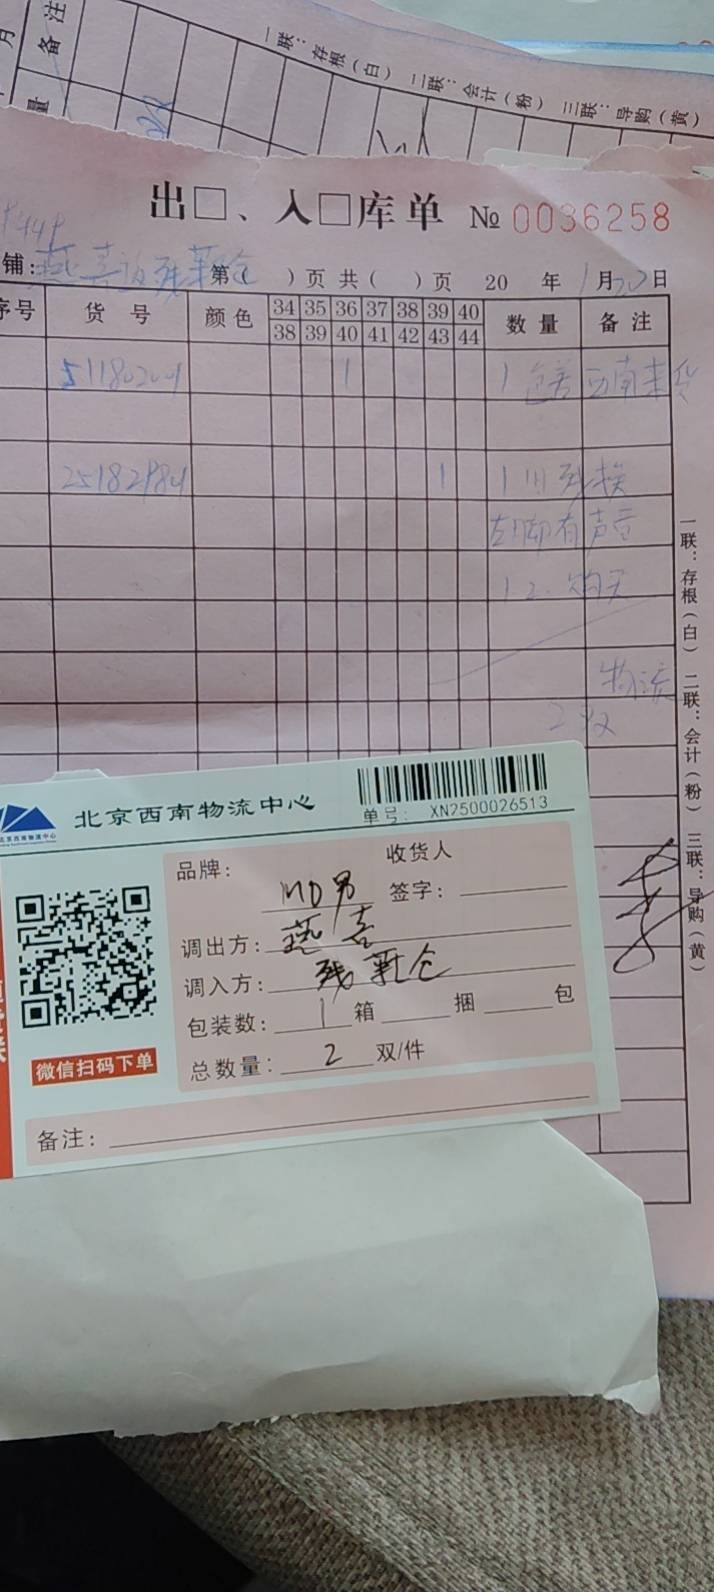 月 备注 一联：存根（白）二联：会计（粉）三联：导购（黄）
量
出□、入□库单 № 0036258
铺：燕喜 残鞋仓 第（ ）页 共（ ）页 20 年 1月20日
序号 货号 颜色 34 35 36 37 38 39 40 数量 备注
38 39 40 41 42 43 44
511802001 1 1 西南来货
25182984 1 1 残换
左脚有声音
1.2.购买
物流
2双
一联：存根（白）二联：会计（粉）三联：导购（黄）
北京西南物流中心
单号： XN2500026513
北京西南物流中心
品牌： MD男 收货人
签字：
调出方： 燕喜
调入方： 残鞋仓
包装数： 1 箱 捆 包
总数量： 2 双/件
微信扫码下单
备注：